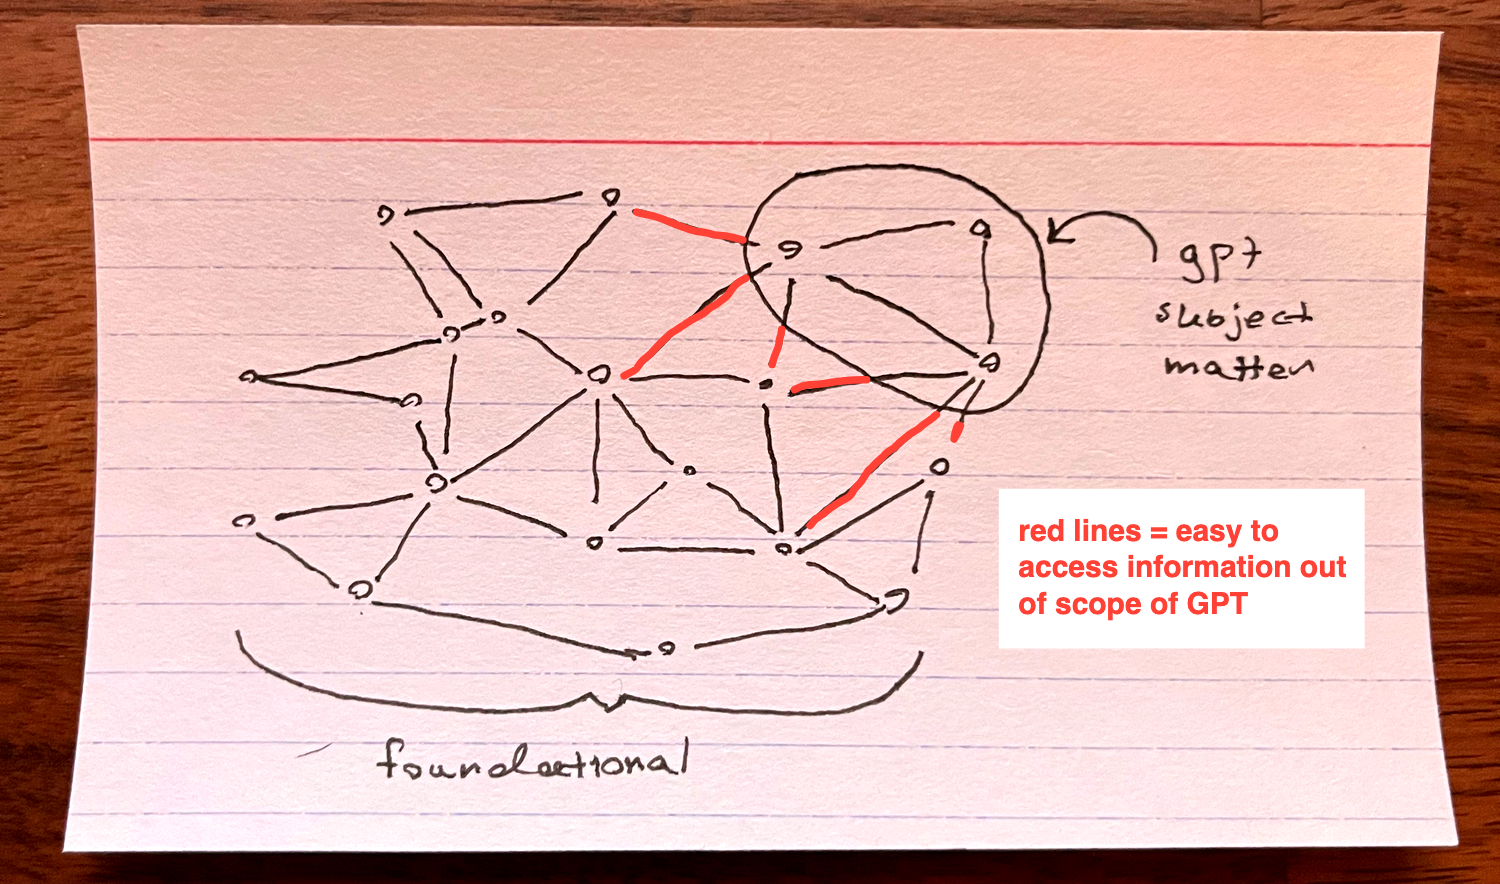 gpt
subject
matter
red lines = easy to
access information out
of scope of GPT
foundational